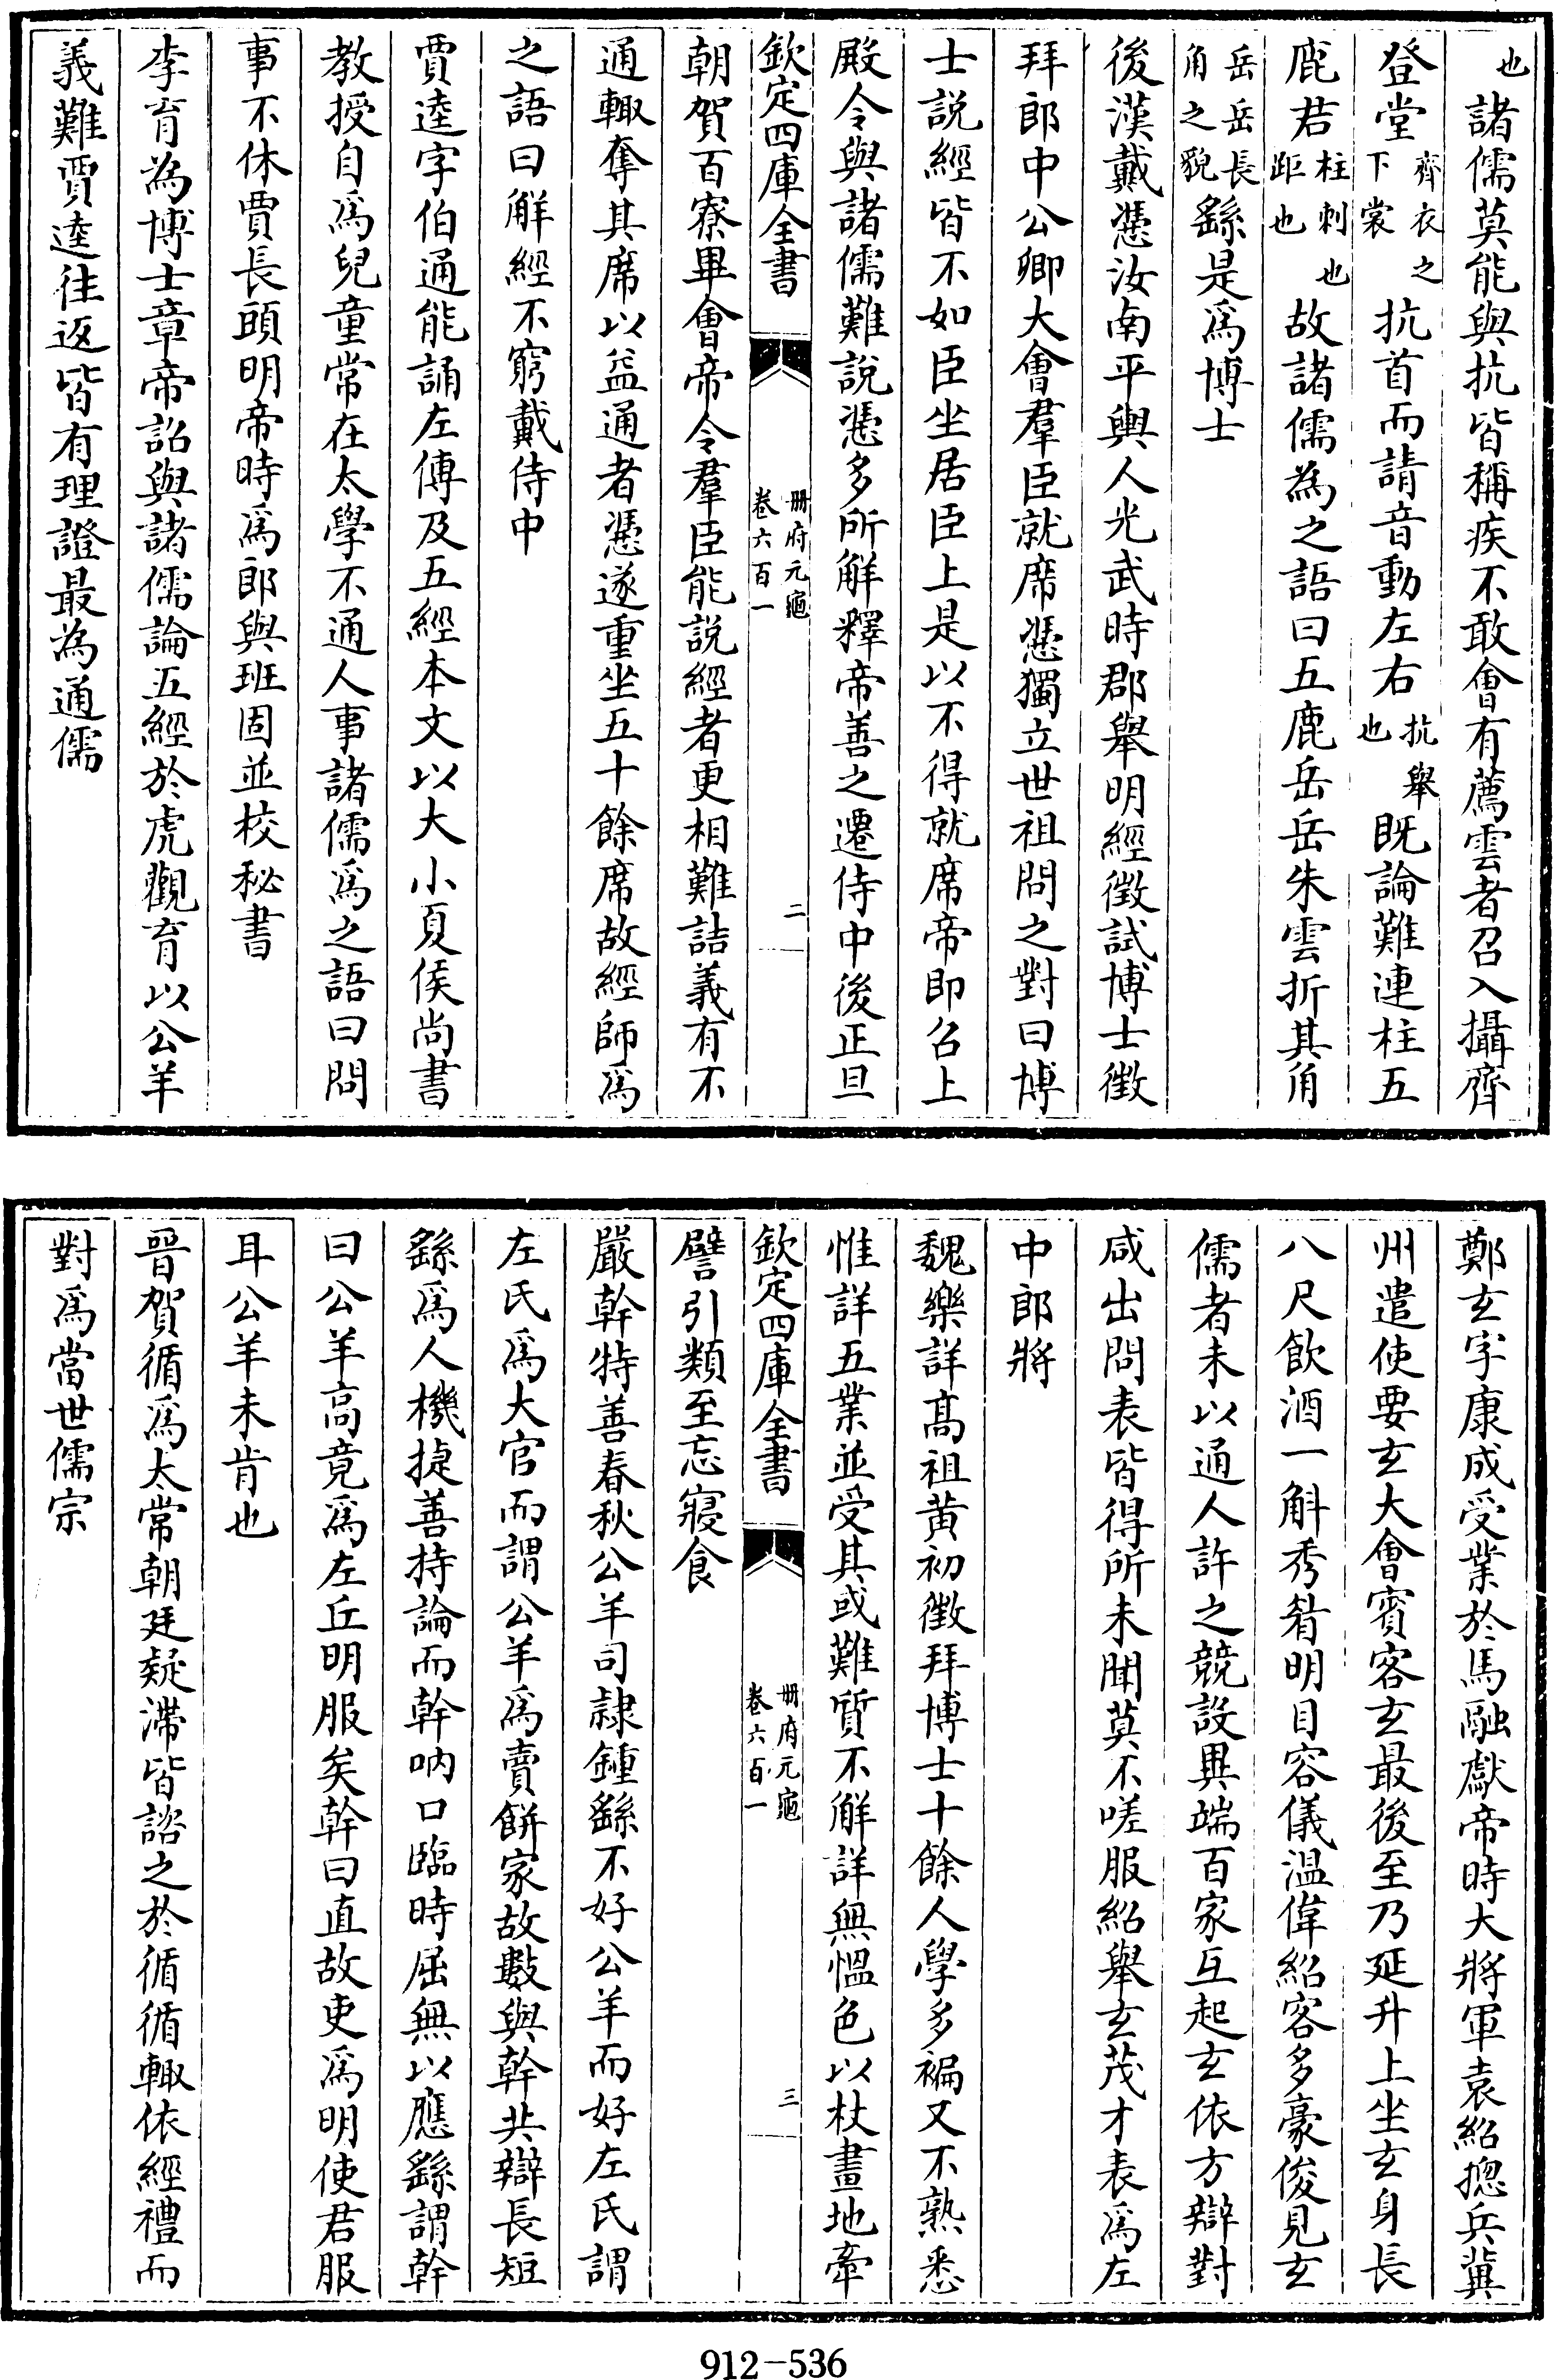 也諸儒莫能與抗皆稱疾不敢會有薦雲者召入攝齊
登堂齊衣之下裳抗首而請音動左右抗舉也既論難連柱五
鹿君柱刺也距也故諸儒為之語曰五鹿岳岳朱雲折其角
岳岳長角之貌繇是爲博士
後漢戴憑汝南平輿人光武時郡舉明經徵試博士徵
拜郎中公卿大會羣臣就席憑獨立世祖問之對曰博
士説經皆不如臣坐居臣上是以不得就席帝即召上
殿令與諸儒難説憑多所解釋帝善之遷侍中後正旦
欽定四庫全書
冊府元龜
卷六百一
二
朝賀百寮畢會帝令羣臣能説經者更相難詰義有不
通輙奪其席以益通者憑遂重坐五十餘席故經師爲
之語曰解經不窮戴侍中
賈逵字伯通能誦左傳及五經本文以大小夏侯尚書
教授自爲兒童常在太學不通人事諸儒爲之語曰問
事不休賈長頭明帝時爲郎與班固並校秘書
李育為博士章帝詔與諸儒論五經於虎觀育以公羊
義難賈逵往返皆有理證最為通儒
鄭玄字康成受業於馬融獻帝時大將軍袁紹揔兵冀
州遣使要玄大會賓客玄最後至乃延升上坐玄身長
八尺飲酒一斛秀眉明目容儀温偉紹客多豪俊見玄
儒者未以通人許之競設異端百家互起玄依方辯對
咸出問表皆得所未聞莫不嗟服紹舉玄茂才表爲左
中郎將
魏樂詳髙祖黄初徵拜博士十餘人學多褊又不熟悉
惟詳五業並受其或難質不解詳無愠色以杖畫地牽
欽定四庫全書
冊府元龜
卷六百一
三
譬引類至忘寢食
嚴幹特善春秋公羊司隷鍾繇不好公羊而好左氏謂
左氏爲大官而謂公羊爲賣餅家故數與幹共辯長短
繇爲人機捷善持論而幹吶口臨時屈無以應繇謂幹
曰公羊高竟爲左丘明服矣幹曰直故吏爲明使君服
耳公羊未肯也
晉賀循爲太常朝廷疑滯皆諮之於循循輙依經禮而
對爲當世儒宗
912-536